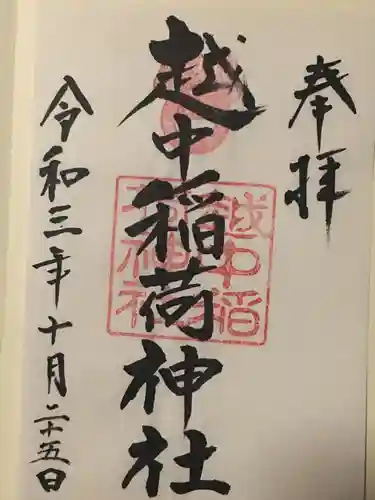 奉拝
越中稲荷神社
越中稲
荷神社
令和三年十月二十五日